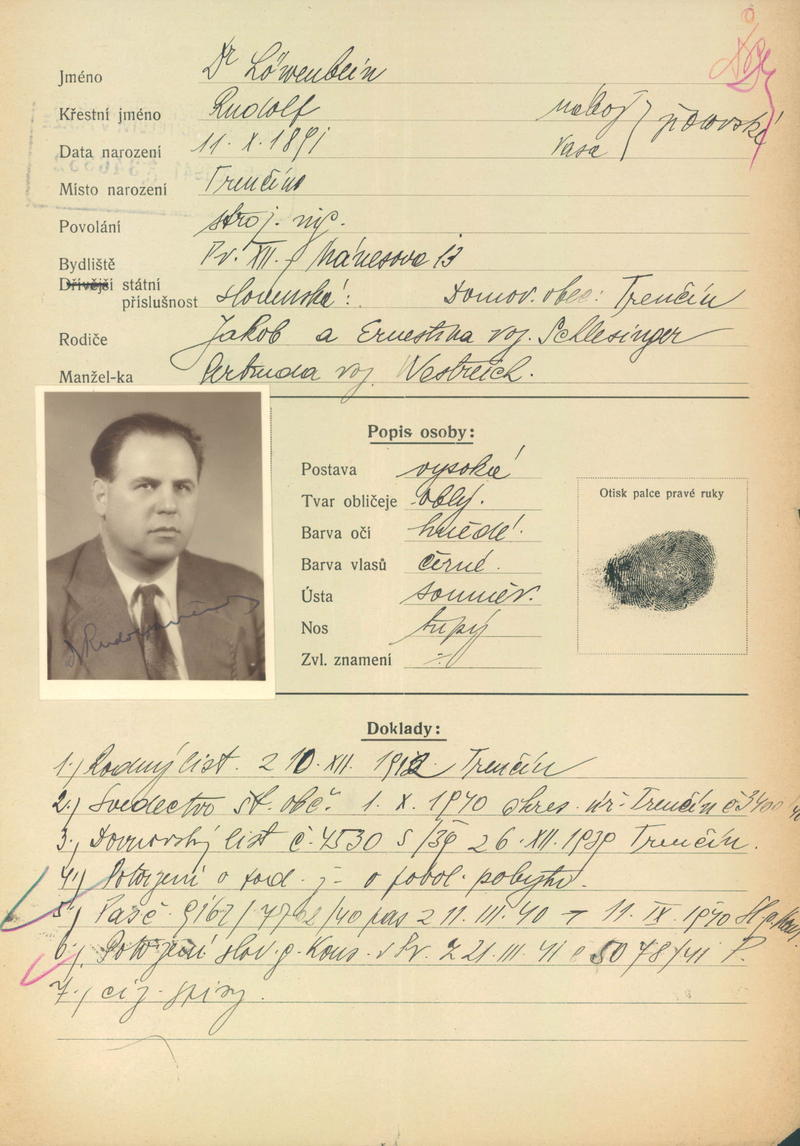 Jméno Dr Löwenbein
Křestní jméno Rudolf nábož.
Data narození 11. X. 1891 rasa } židovské
Místo narození Trenčíno
Povolání stroj. inž.
Bydliště Pr. XII. Mánesova 13
Dřívější státní
příslušnost slovenská: Domov. obec: Trenčín
Rodiče Jakob a Ernestina roz. Schlesinger
Manžel-ka Gertruda roz. Westreich.
Popis osoby:
Postava vysoká
Tvar obličeje oblý.
Barva očí hnědé.
Barva vlasů černé.
Ústa souměr.
Nos tupý
Zvl. znamení
Otisk palce pravé ruky
Doklady:
1.) Rodný list. z 10. XII. 1912 Trenčín
2.) Svedectvo št. obč. 1. X. 1940 okres. úř. Trenčín č 3400
3.) Domovský list č. 4530 5/39 26. XII. 1939 Trenčín.
4.) Potvrzení o o povol. pobytu.
5.) Pas č. 40 pas z 11. III. 40 - 11. IX. 1940
6.) Potvrzení slov. g. Kons. v Pr. z 21. III. 41 č 5078/41 P.
7.) ciz. spisy.